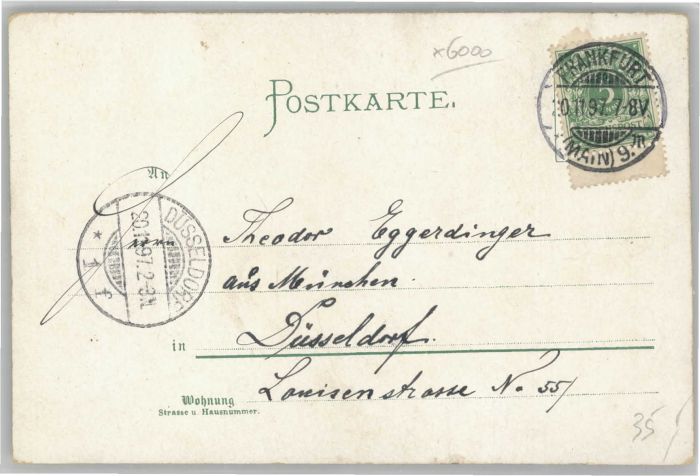 x6000
POSTKARTE.
FRANKFURT
20.11.97.7-8V.
(MAIN) 9.
An
Theodor Eggerdinger
aus München.
DÜSSELDORF
20.11.97.2-3N.
* 1 f
in Düsseldorf.
Louisenstrasse No 55/
Wohnung
Strasse u Hausnummer.
35